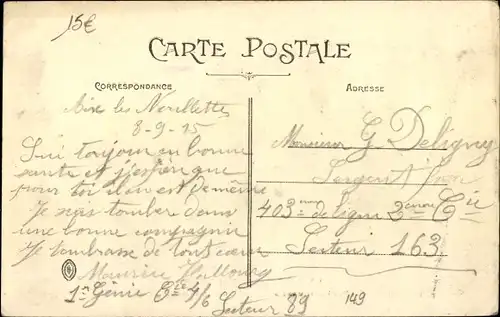 15€
CARTE POSTALE
CORRESPONDANCE
ADRESSE
Aix les Noulettes
8-9-15
Suis toujour en bonne
sante et j'espère que
pour toi il en est de même
Je suis tomber dans
une bonne compagnie
Je t'embrasse de tout cœur
Maurice
1er Génie Cie 4/6 Secteur 89
149
Monsieur G Deligny
Sergent
403 de ligne Cie
Secteur 163